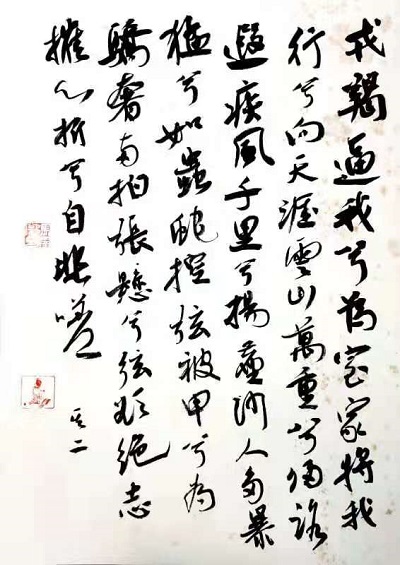 戎羯逼我兮為室家將我
行兮向天涯雲山萬重兮歸路
遐疾風千里兮揚塵沙人多暴
猛兮如蟲蛇控弦被甲兮為
驕奢兩拍張懸兮弦欲絕志
摧心折兮自悲嗟
其二